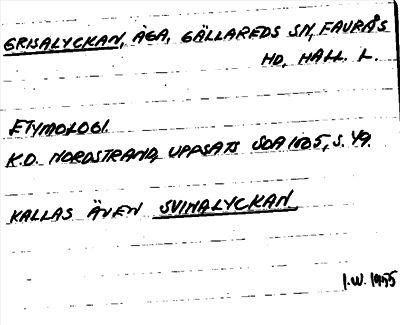 GRISALYCKAN, ÄGA, GÄLLAREDS SN, FAURÅS
HD, HALL. L.
ETYMOLOGI.
K.D. NORDSTRAND, UPPSATS SOA 1605, S. 49.
KALLAS ÄVEN SVINALYCKAN
I.W. 1955